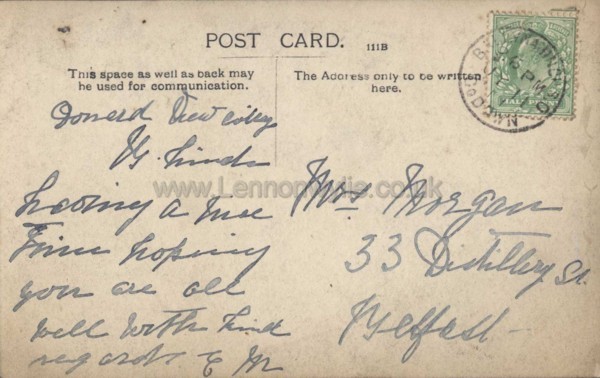 POST CARD. 111B
This space as well as back may
be used for communication.
The Address only to be written
here.
HALF
PM
Donard View
www.Lennonwylie.co.uk
having a nice
Time hoping
you are all
well with kind
regards E M
Mrs Morgan
33 Distillery St.
Belfast